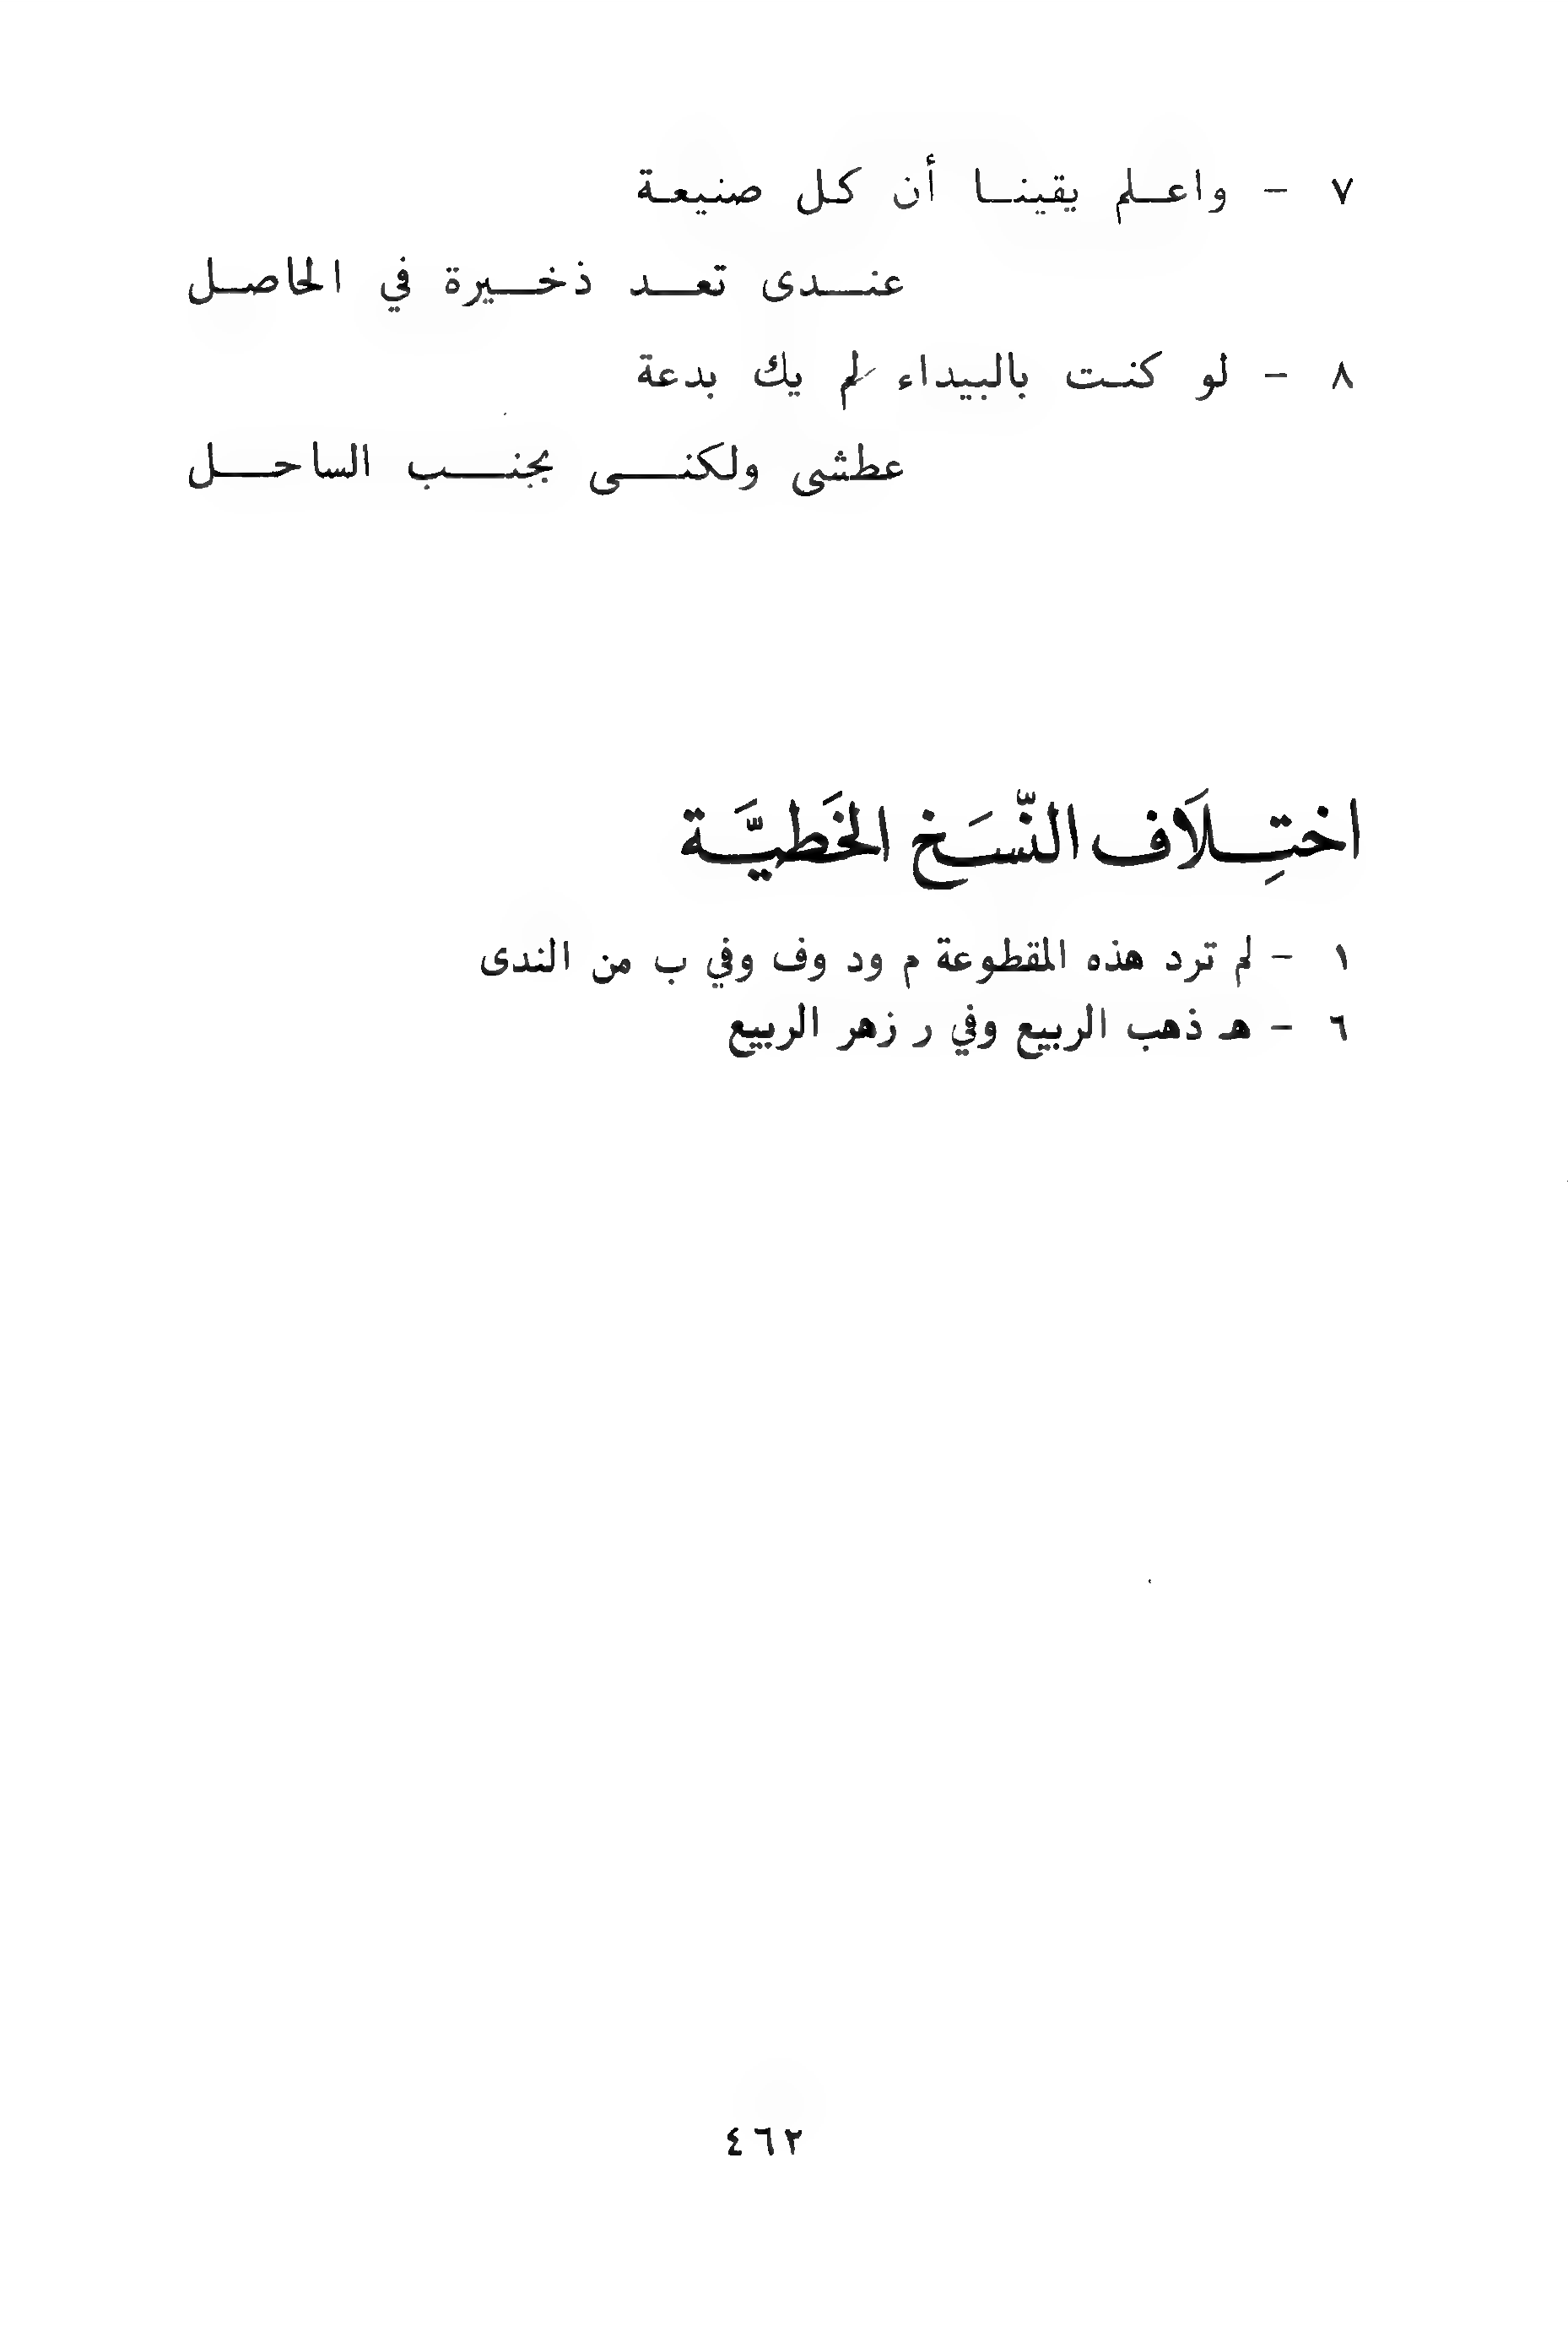 ٧ - واعلم يقينا أن كل صنيعة
عندى تعد ذخيرة في الحاصل
٨ - لو كنت بالبيداء لم يك بدعة
عطشى ولكنى بجنب الساحل
اختِلَاف النّسَخ الخَطيَّة
١ - لم ترد هذه المقطوعة م ود وف وفي ب من الندى
٦ - هـ ذهب الربيع وفي ر زهر الربيع
٤٦٢